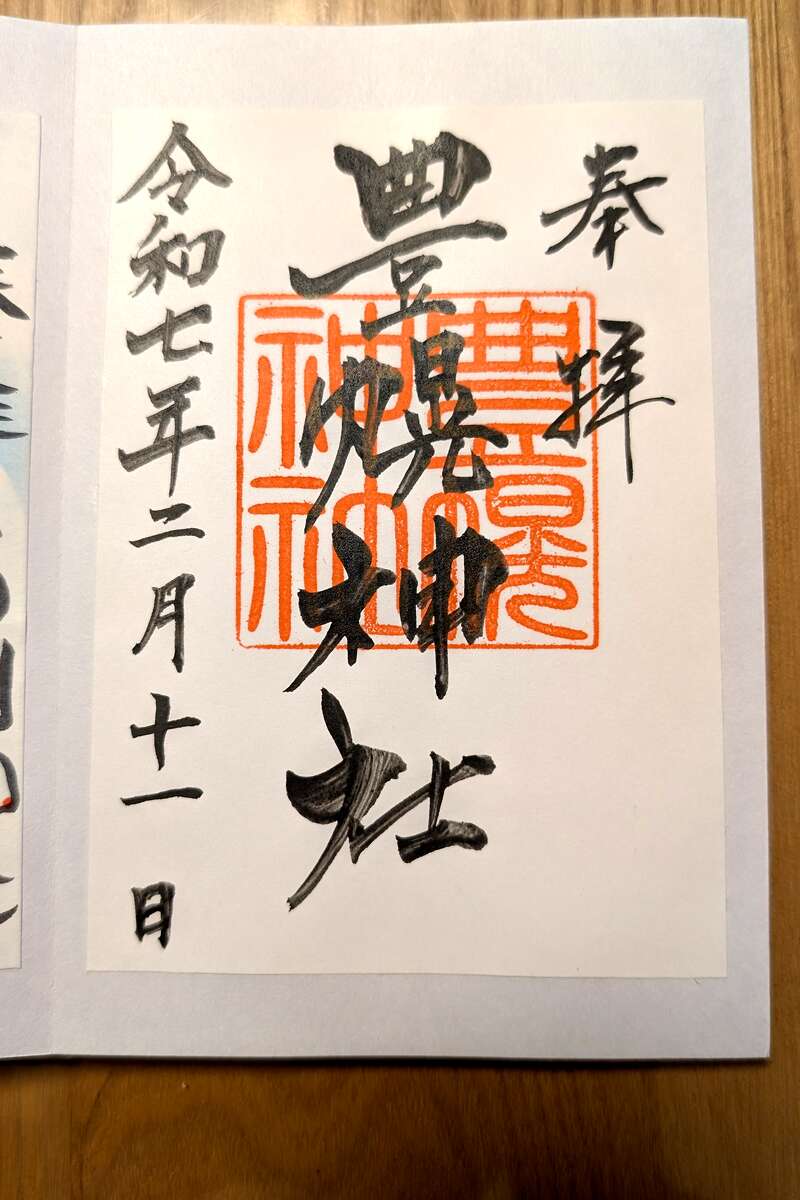 奉拝
豊幌神社
令和七年二月十一日
豊幌
神社